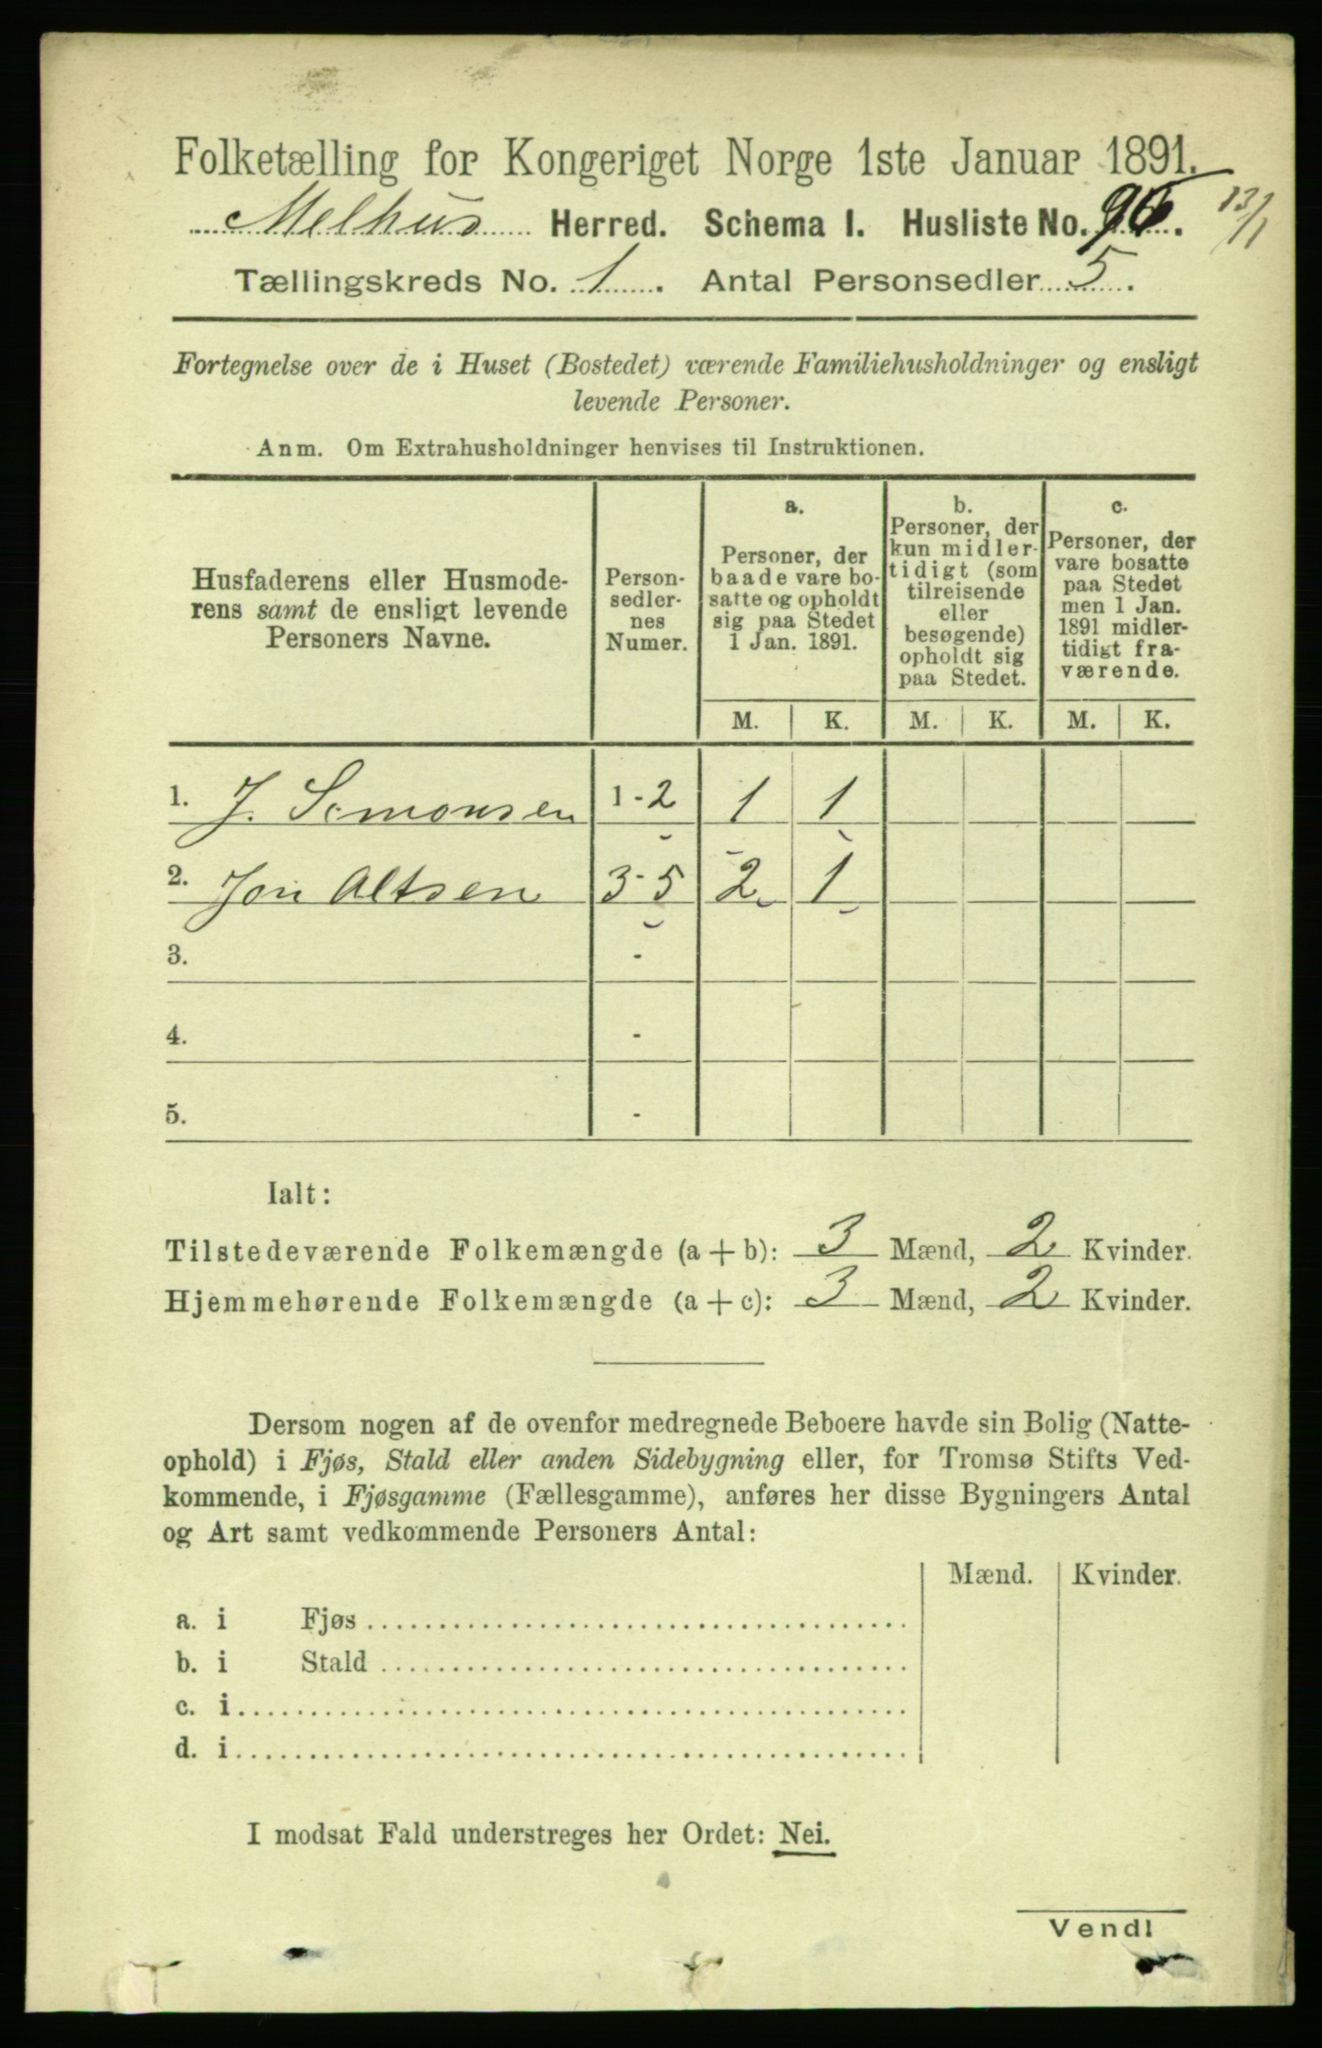 Folketælling for Kongeriget Norge 1ste Januar 1891.
Melhus Herred. Schema I. Husliste No. 96. 13/1
Tællingskreds No. 1. Antal Personsedler 5.
Fortegnelse over de i Huset (Bostedet) værende Familiehusholdninger og ensligt
levende Personer.
Anm. Om Extrahusholdninger henvises til Instruktionen.
Husfaderens eller Husmode-
rens samt de ensligt levende
Personers Navne.
Person-
sedler-
nes
Numer.
a.
Personer, der
baade vare bo-
satte og opholdt
sig paa Stedet
1 Jan. 1891.
b.
Personer, der
kun midler-
tidigt (som
tilreisende
eller
besøgende)
opholdt sig
paa Stedet.
c.
Personer, der
vare bosatte
paa Stedet
men 1 Jan.
1891 midler-
tidigt fra-
værende.
M. K. M. K. M. K.
1. J. Simonsen 1-2 1 1
2. Jon Altsen 3-5 2 1
3. -
4. -
5. -
Ialt:
Tilstedeværende Folkemængde (a + b): 3 Mænd, 2 Kvinder.
Hjemmehørende Folkemængde (a + c): 3 Mænd, 2 Kvinder.
Dersom nogen af de ovenfor medregnede Beboere havde sin Bolig (Natte-
ophold) i Fjøs, Stald eller anden Sidebygning eller, for Tromsø Stifts Ved-
kommende, i Fjøsgamme (Fællesgamme), anføres her disse Bygningers Antal
og Art samt vedkommende Personers Antal:
Mænd. Kvinder.
a. i Fjøs
b. i Stald
c. i
d. i
I modsat Fald understreges her Ordet: Nei.
Vend!